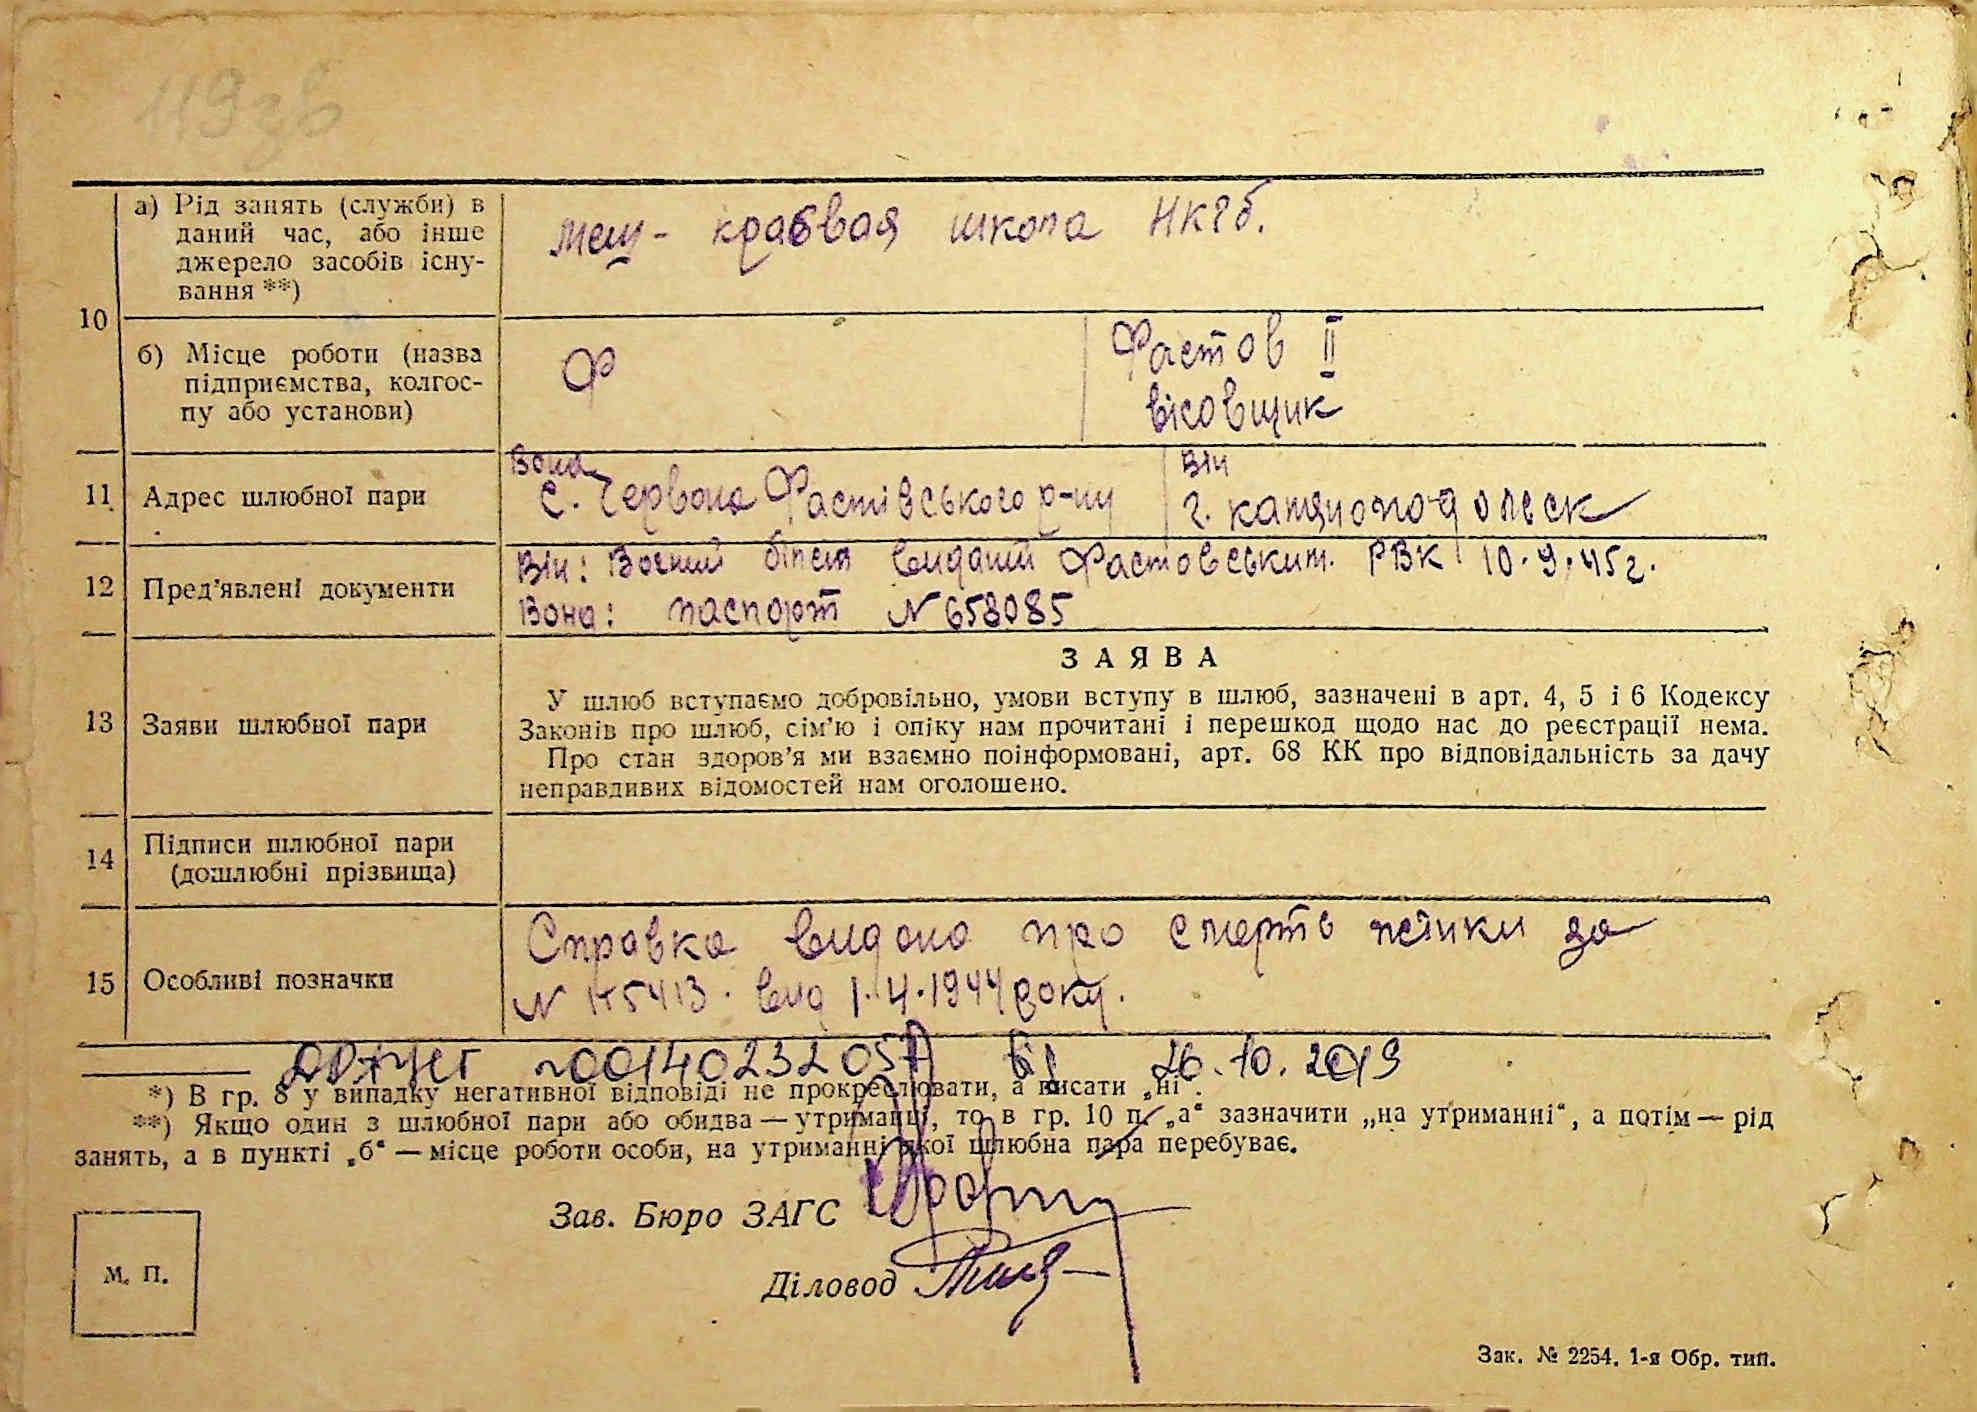 119зв
а) Рід занять (служби) в
даний час, або інше
джерело засобів існу-
вання **)
школа НКГБ.
10
б) Місце роботи (назва
підприємства, колгос-
пу або установи)
Ф
Фастов II
вісовщик
11
Адрес шлюбної пари
Вона
с. Червона Фастівського р-ну
Він
г. Каменоподолеск
12
Пред'явлені документи
Він: Воєний білет виданий Фастовським. РВК 10.9.45г.
Вона: паспорт N 658085
13
Заяви шлюбної пари
ЗАЯВА
У шлюб вступаємо добровільно, умови вступу в шлюб, зазначені в арт. 4, 5 і 6 Кодексу
Законів про шлюб, сім'ю і опіку нам прочитані і перешкод щодо нас до реєстрації нема.
Про стан здоров'я ми взаємно поінформовані, арт. 68 КК про відповідальність за дачу
неправдивих відомостей нам оголошено.
14
Підписи шлюбної пари
(дошлюбні прізвища)
15
Особливі позначки
Справка видана про смерть за
N вид 1.4.1944 року.
26.10.2019
*) В гр. 8 у випадку негативної відповіді не прокреслювати, а писати „ні".
**) Якщо один з шлюбної пари або обидва — утриманці, то в гр. 10 п. „а" зазначити „на утриманні", а потім — рід
занять, а в пункті „б" — місце роботи особи, на утриманні якої шлюбна пара перебуває.
Зав. Бюро ЗАГС
Діловод
М. П.
Зак. № 2254. 1-я Обр. тип.